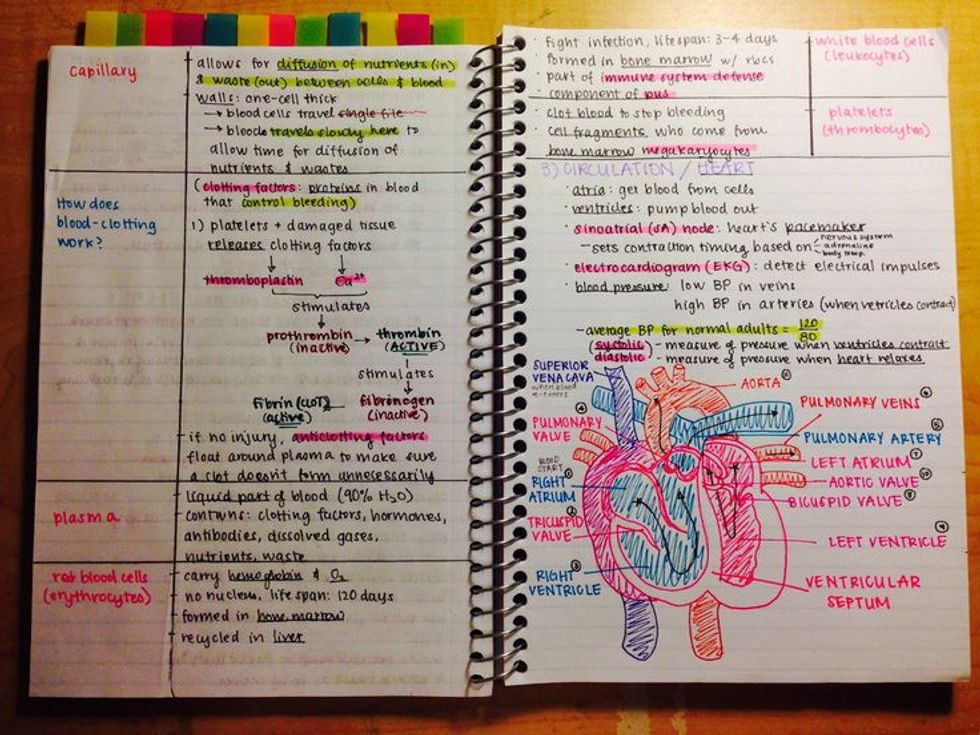 Capillary
allows for diffusion of nutrients (in)
& waste (out) between cells & blood
walls: one-cell thick
→ blood cells travel single file
→ blood travels slowly here to
allow time for diffusion of
nutrients & wastes
How does
blood-clotting
work?
(clotting factors: proteins in blood
that control bleeding)
1) platelets + damaged tissue
releases clotting factors
thromboplastin Ca2+
stimulates
prothrombin → thrombin
(inactive) (ACTIVE)
stimulates
Fibrin (CLOT) ← fibrinogen
(active) (inactive)
if no injury, anticlotting factors
float around plasma to make sure
a clot doesn't form unnecessarily
plasma
liquid part of blood (90% H2O)
contains: clotting factors, hormones,
antibodies, dissolved gases,
nutrients, waste
red blood cells
(erythrocytes)
carry hemoglobin & O2
no nucleus, lifespan: 120 days
formed in bone marrow
recycled in liver
· Fight infection, lifespan: 3-4 days
formed in bone marrow w/ rbcs
· part of immune system defense
· component of pus
white blood cells
(leukocytes)
· clot blood to stop bleeding
· cell fragments who come from
bone marrow megakaryocytes
platelets
(thrombocytes)
3) CIRCULATION / HEART
· atria: get blood from cells
· ventricles: pump blood out
· sinoatrial (SA) node: heart's pacemaker
- sets contraction timing based on nervous system
adrenaline
body temp.
· electrocardiogram (EKG): detect electrical impulses
· blood pressure: low BP in veins
high BP in arteries (when ventricles contract)
- average BP for normal adults = 120/80
(systolic) - measure of pressure when ventricles contract
(diastolic) - measure of pressure when heart relaxes
SUPERIOR
VENA CAVA
when blood
AORTA
PULMONARY VEINS
PULMONARY
VALVE
PULMONARY ARTERY
LEFT ATRIUM
START
RIGHT
ATRIUM
AORTIC VALVE
BICUSPID VALVE
TRICUSPID
VALVE
LEFT VENTRICLE
RIGHT
VENTRICLE
VENTRICULAR
SEPTUM